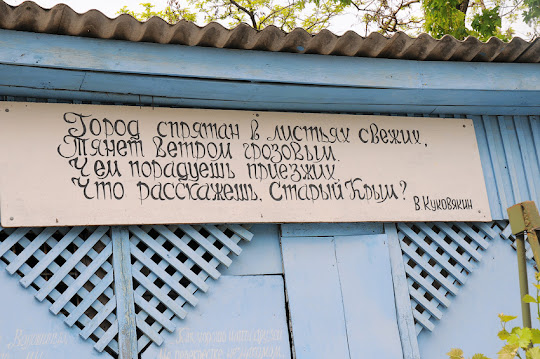 Город спрятан в листьях свежих,
Тянет ветром грозовым.
Чем порадуешь приезжих
Что расскажешь, Старый Крым?
В. Куковякин